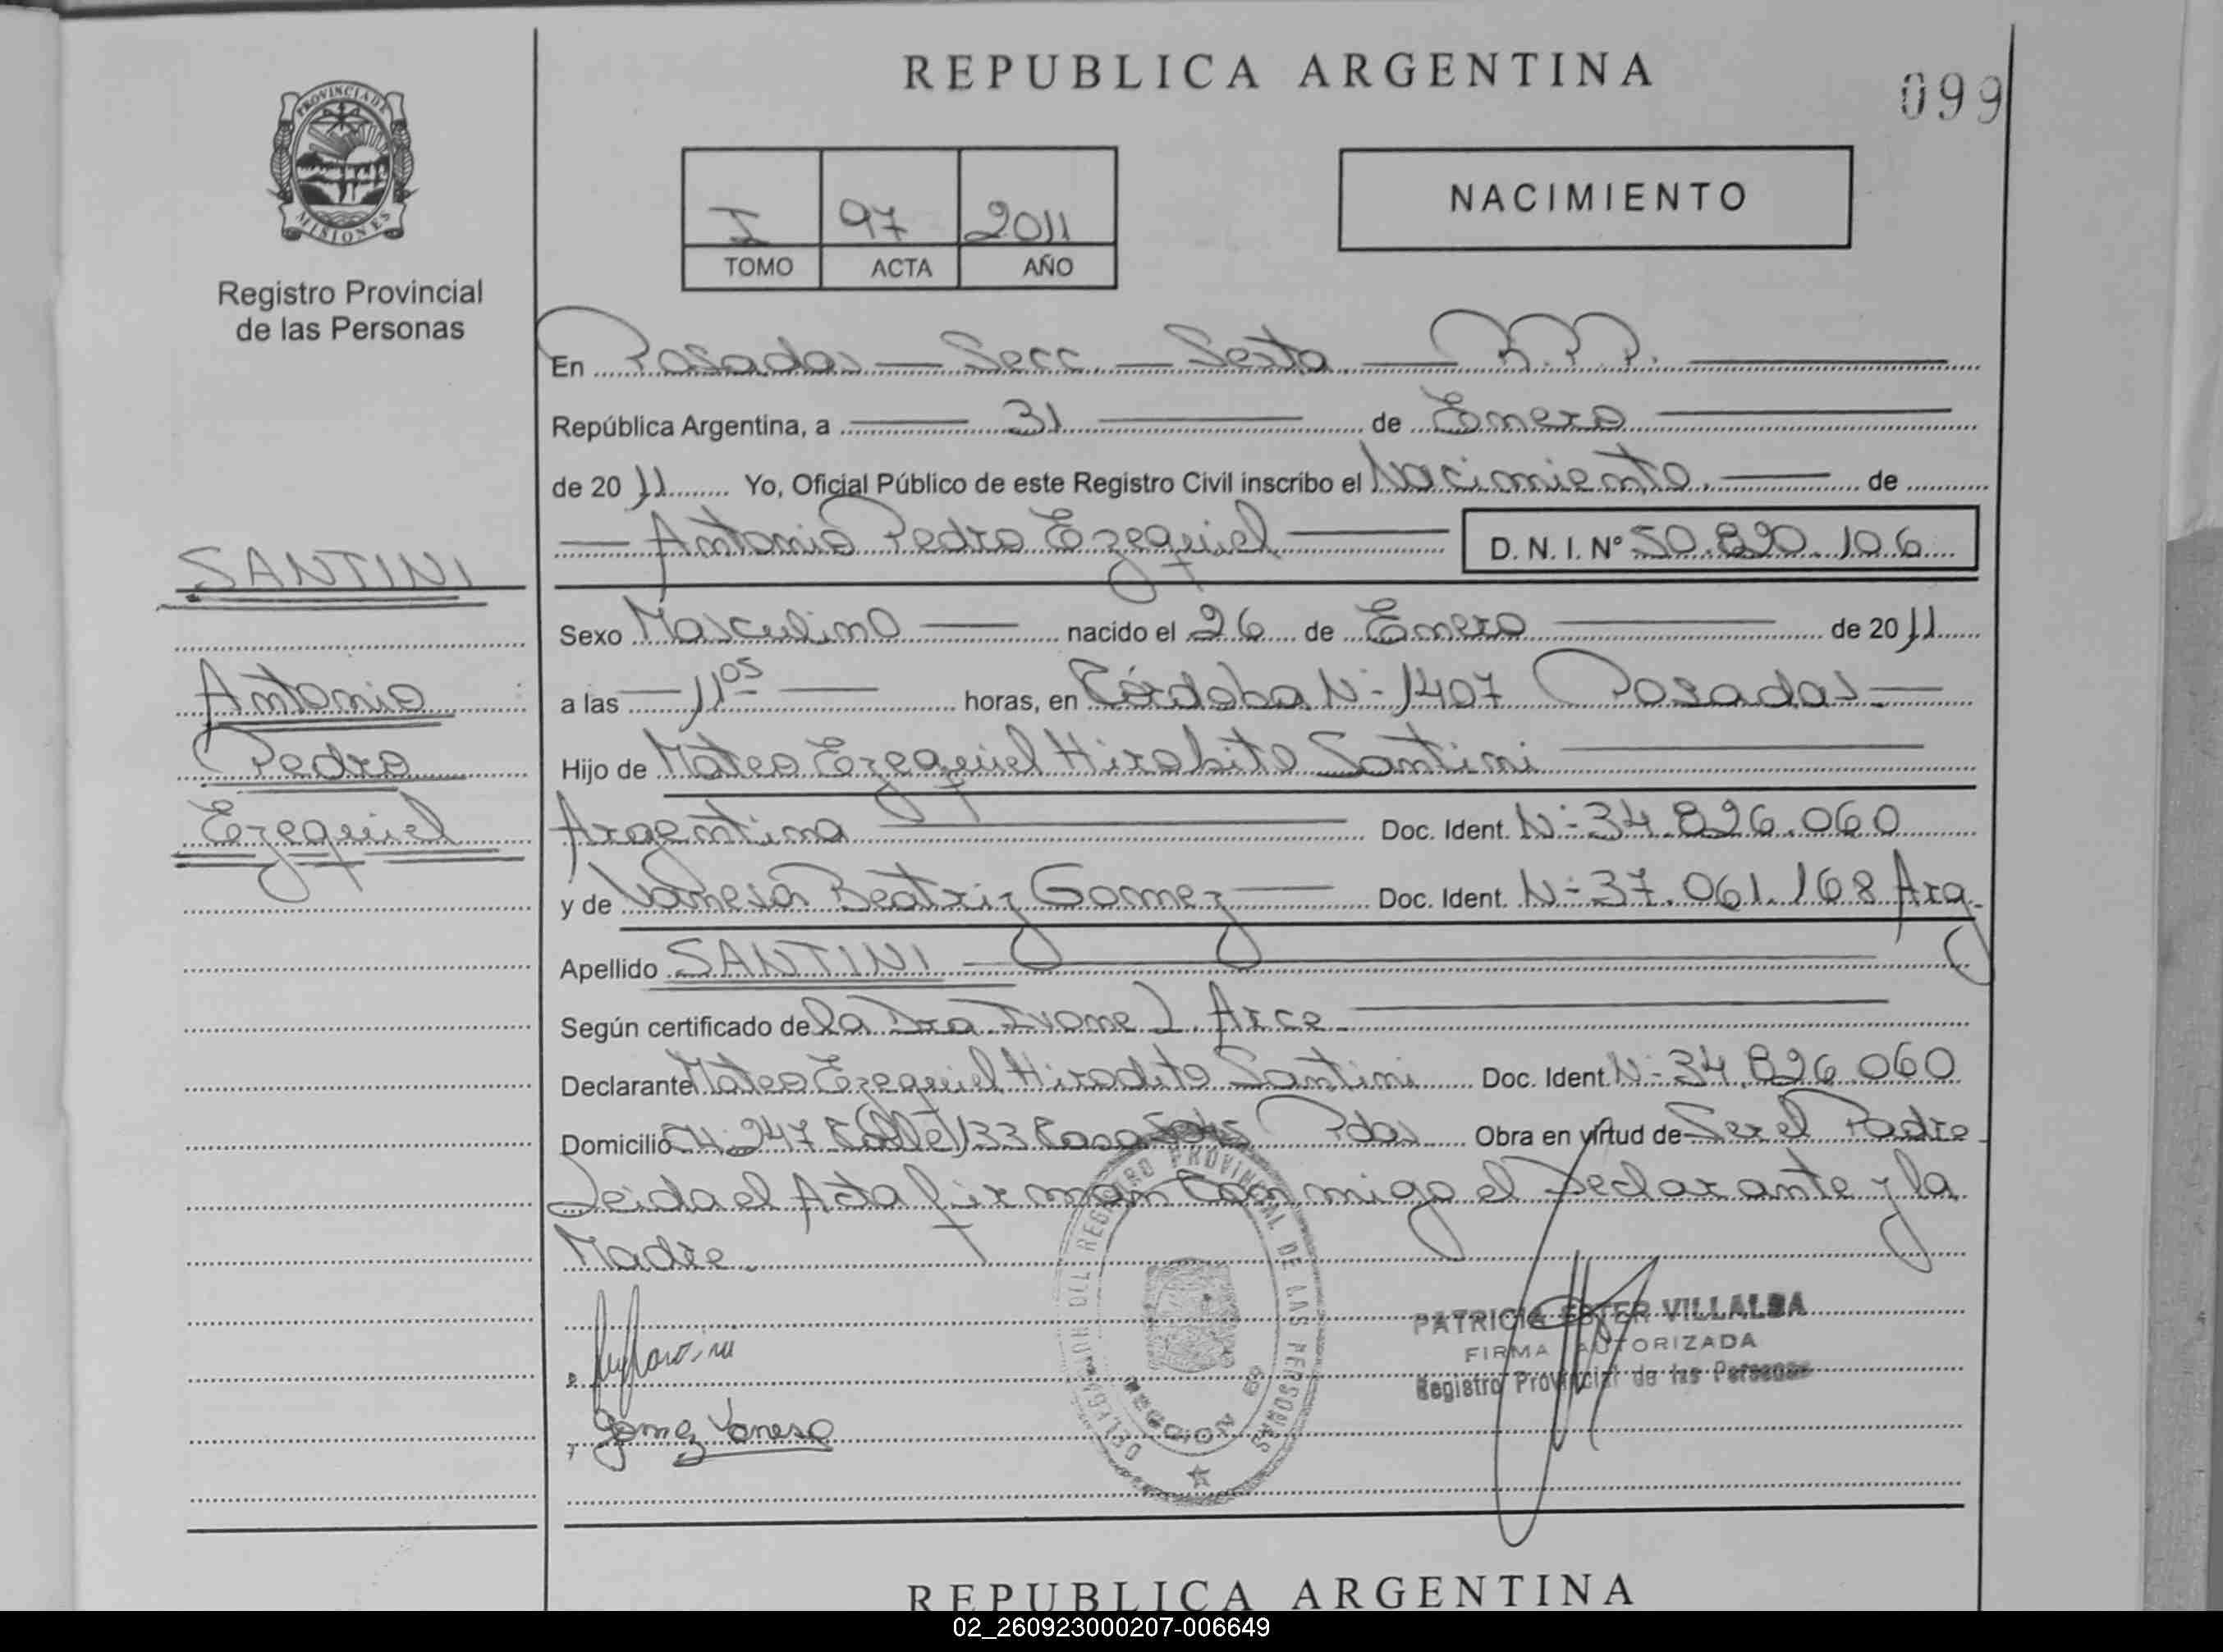 REPUBLICA ARGENTINA
099
PROVINCIA DE
MISIONES
Registro Provincial
de las Personas
I 97 2011
TOMO ACTA AÑO
NACIMIENTO
En Posadas — Secc. — Sexta. — R.P.P.
República Argentina, a — 31 — de Enero
de 2011 Yo, Oficial Público de este Registro Civil inscribo el Nacimiento. — de
— Antonio Pedro Ezequiel — D. N. I. Nº 50.890.106
SANTINI
Antonio
Pedro
Ezequiel
Sexo Masculino — nacido el 26 de Enero — de 2011
a las — 11 05 — horas, en Córdoba N= 1407 Posadas —
Hijo de Mateo Ezequiel Hirohito Santini —
Argentina — Doc. Ident. N= 34.896.060
y de Vanesa Beatriz Gomez — Doc. Ident. N= 37.061.168 Arg.
Apellido SANTINI —
Según certificado de la Dra Ivone L. Arce —
Declarante Mateo Ezequiel Hirohito Santini Doc. Ident. N= 34.896.060
Domicilio CH. 247 Calle 133 Casa Pdas Obra en virtud de Ser el Padre
Leida el Acta firman Conmigo el Declarante y la
Madre.
Gomez Vanesa
DELEGACION DEL REGISTRO PROVINCIAL DE LAS PERSONAS
SECCION 6ª
PATRICIA ESTER VILLALBA
FIRMA AUTORIZADA
Registro Provincial de las Personas
REPUBLICA ARGENTINA
02_260923000207-006649